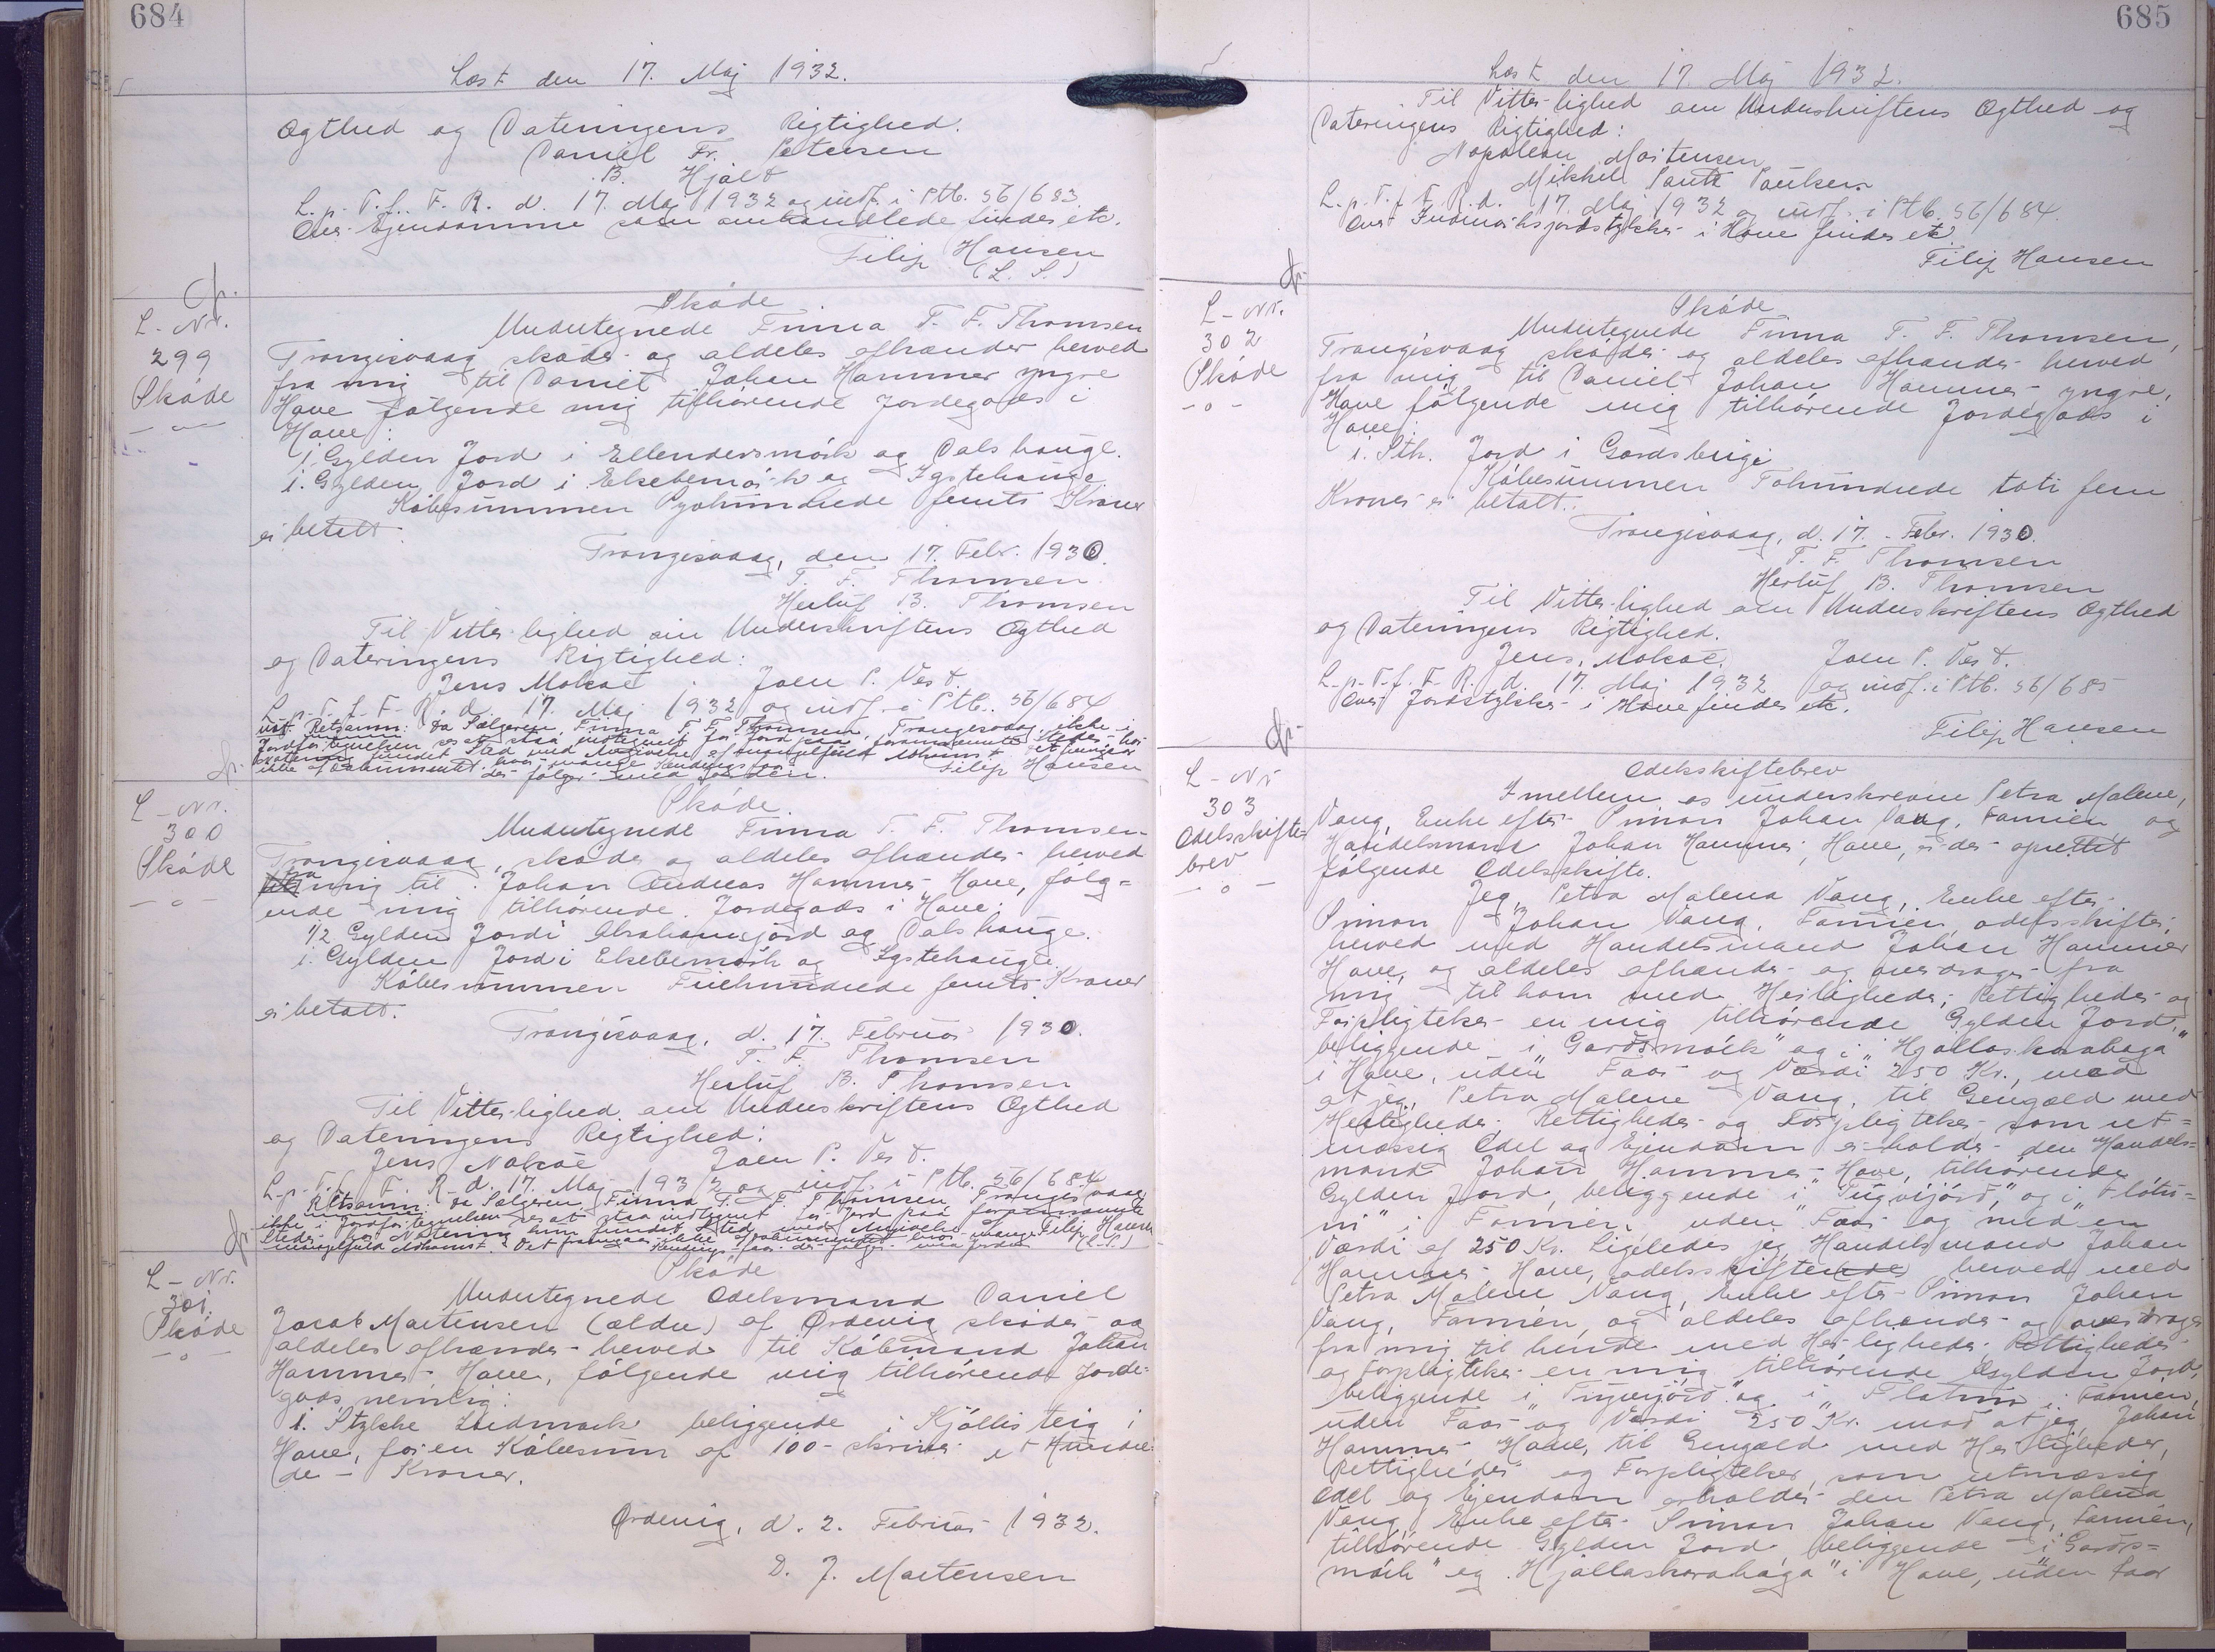 684
Læst den 17. Maj 1932.
Ægthed og Dateringens Rigtighed.
Daniel Fr. Petersen
B. Hjalt
L. p. T. f. F. R. d. 17. Maj 1932 og indf. i Ptb. 56/683.
Over Ejendomme som omhandlede findes etc.
Filip Hansen
(L. S.)
L-Nr.
299
Skøde
Skøde
Undertegnede Finna T. F. Thomsen
Trangisvaag skøder og aldeles afhænder herved
fra mig til Daniel Johan Hammer yngre
Hove følgende mig tilhørende Jordegods i
Hove:
1. Gylden Jord i Ellendersmørk og Dalshauge.
1. Gylden Jord i Ekebemørk og Igstehauge.
Købesummen Syvhundrede femti Kroner
er betalt.
Trangisvaag, den 17. Febr. 1930.
T. F. Thomsen
Herluf B. Thomsen
Til Vitterlighed om Underskriftens Ægthed
og Dateringens Rigtighed:
Jens Mohr Joen P. Vest.
L. p. T. f. F. R. d. 17. Maj 1932 og indf. i Ptb. 56/684
Retsanm: Da Sælgeren, Finna T. F. Thomsen, Trangisvaag, ikke i
Jordfortegnelsen ses at staa indtegnet for Jord paa forannævnte Steder, har
Notering fundet Sted med Angivelse af mangelfuld Adkomst. Det fremgaar
ikke af Dokumentet, hvor mange Fædrifts Faar
der følger med Jorden. Filip Hansen
L-Nr.
300
Skøde
Skøde.
Undertegnede Finna T. F. Thomsen
Trangisvaag, skøder og aldeles afhænder herved
fra mig til Johan Andreas Hammer, Hove, følg=
ende mig tilhørende Jordegods i Hove:
1/2 Gylden Jord i Abrahamsjord og Dalshauge.
1. Gylden Jord i Ekebemørk og Igstehauge.
Købesummen Firehundrede femti Kroner
er betalt.
Trangisvaag, d. 17. Februar 1930.
T. F. Thomsen
Herluf B. Thomsen
Til Vitterlighed om Underskriftens Ægthed
og Dateringens Rigtighed:
Jens Mohr Joen P. Vest.
L. p. T. f. F. R. d. 17. Maj 1932 og indf. i Ptb. 56/684
Retsanm: Da Sælgeren Finna T. F. Thomsen, Trangisvaag
ikke i Jordfortegnelsen ses at staa indtegnet for Jord paa forannævnte
Steder, har Notering kun fundet Sted med Angivelse af Filip Hansen
mangelfuld Adkomst. Det fremgaar ikke af Dokumentet hvor mange (L.S.)
Fædrifts Faar der følger med Jorden
L-Nr.
301.
Skøde
Skøde
Undertegnede Odelsmand Daniel
Jacob Mortensen (ældre) af Ørdevig skøder og
aldeles afhænder herved til Købmand Johan
Hammer Hove, følgende mig tilhørende Jorde=
gods nemlig:
1. Stykke Indmark beliggende i Kjøllisteig i
Hove, for en Købesum af 100 - skriver et Hundre=
de - Kroner.
Ørdevig, d. 2. Februar 1932.
D. J. Mortensen
685
Læst den 17. Maj 1932.
Til Vitterlighed om Underskriftens Ægthed og
Dateringens Rigtighed:
Napoleon Mortensen
Mikkel Poulsen
L. p. T. f. F. R. d. 17. Maj 1932 og indf. i Ptb. 56/684.
Over Indmarksjordstykker i Hove findes etc.
Filip Hansen
L-Nr.
302
Skøde
Skøde
Undertegnede Finna T. F. Thomsen,
Trangisvaag skøder og aldeles afhænder herved
fra mig til Daniel Johan Hammer yngre,
Hove følgende mig tilhørende Jordegods i
Hove:
1. Stk. Jord i Gardsbrigi
Købesummen Tohundrede toti fem
Kroner er betalt.
Trangisvaag, d. 17. Febr. 1930.
T. F. Thomsen
Herluf B. Thomsen
Til Vitterlighed om Underskriftens Ægthed
og Dateringens Rigtighed.
Jens Mohr. Joen P. Vest.
L. p. T. f. F. R. d. 17. Maj 1932 og indf. i Ptb. 56/685
Over Jordstykker i Hove findes etc.
Filip Hansen
L-Nr
303
Odelsskifte=
brev
Odelsskiftebrev
Imellem os underskrevne Petra Malene,
Vang, Enke efter Simon Johan Vang, Famien og
Handelsmand Johan Hammer, Hove, er der oprettet
følgende Odelsskifte.
Jeg, Petra Malena Vang, Enke efter
Simon Johan Vang, Famien, odelsskifter
herved med Handelsmand Johan Hammer
Hove, og aldeles afhænder og overdrager fra
mig til ham med Herligheder, Rettigheder og
Forpligtelser en mig tilhørende Gylden Jord,
beliggende i "Gardsmørk" og i "Hjallaskorahaga"
i Hove, uden Faar og Værdi 250 Kr., mod
at jeg, Petra Malene Vang, til Gengæld med
Herligheder, Rettigheder og Forpligtelser som ret=
mæssig Odel og Ejendom erholder den Handels=
mand Johan Hammer, Hove, tilhørende
Gylden Jord, beliggende i "Tugvijørd," og i "Fløtu=
ni" i Famien, uden Faar og med en
Værdi af 250 Kr. Ligeledes jeg, Handelsmand Johan
Hammer Hove, odelsskifter herved med
Petra Malene Vang, Enke efter Simon Johan
Vang, Famien, og aldeles afhænder og overdrager
fra mig til hende med Herligheder, Rettigheder
og Forpligtelser en mig tilhørende Gylden Jord,
beliggende i "Tugvijørd" og i "Fløtuni" i Famien,
uden Faar og Værdi 250 Kr. mod at jeg, Johan
Hammer Hove, til Gengæld med Herligheder,
Rettigheder og Forpligtelser, som retmæssig
Odel og Ejendom erholder den Petra Malena
Vang, Enke efter Simon Johan Vang, Famien,
tilhørende Gylden Jord beliggende i "Gards=
mørk" og "Hjallaskorahaga" i Hove, uden Faar